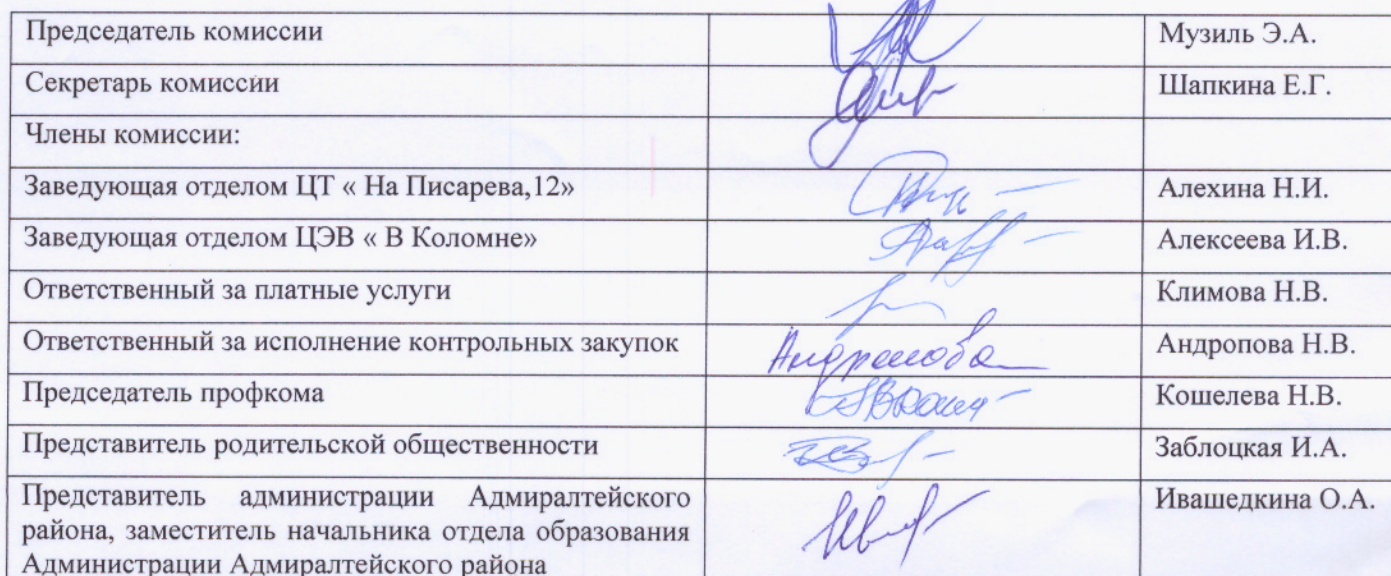 Председатель комиссии Музиль Э.А.
Секретарь комиссии Шапкина Е.Г.
Члены комиссии:
Заведующая отделом ЦТ « На Писарева,12» Алехина Н.И.
Заведующая отделом ЦЭВ « В Коломне» Алексеева И.В.
Ответственный за платные услуги Климова Н.В.
Ответственный за исполнение контрольных закупок Андропова Андропова Н.В.
Председатель профкома Кошелева Н.В.
Представитель родительской общественности Заблоцкая И.А.
Представитель администрации Адмиралтейского Ивашедкина О.А.
района, заместитель начальника отдела образования
Администрации Адмиралтейского района